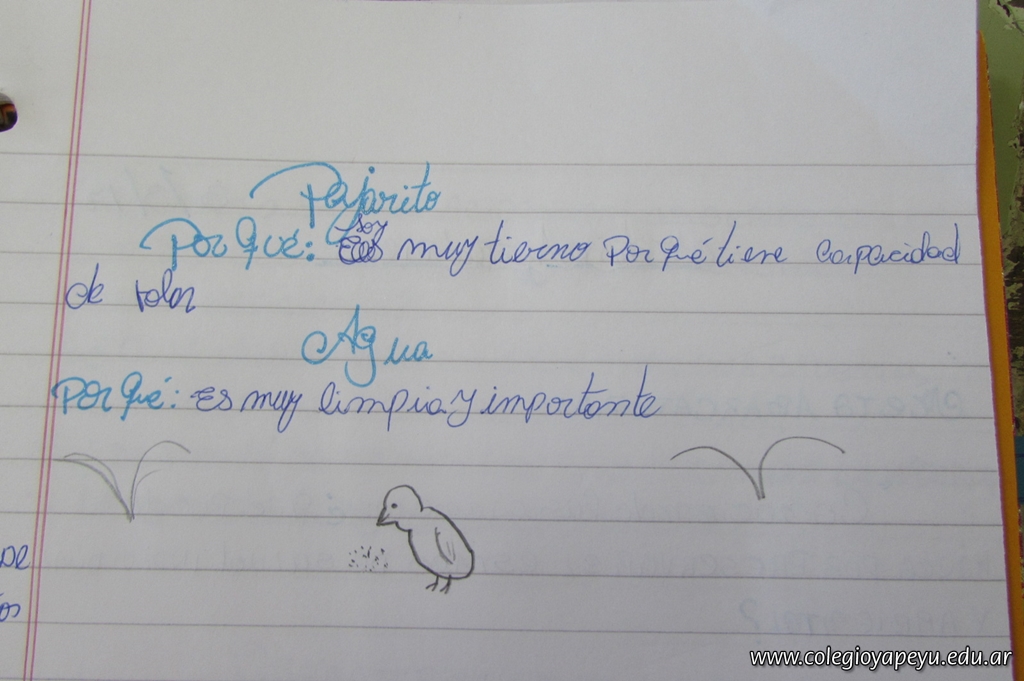 Pajarito
Por qué: soy muy tierno Por qué tiene capacidad
de volar
Agua
Por qué: Es muy limpia y importante
De
os
www.colegioyapeyu.edu.ar